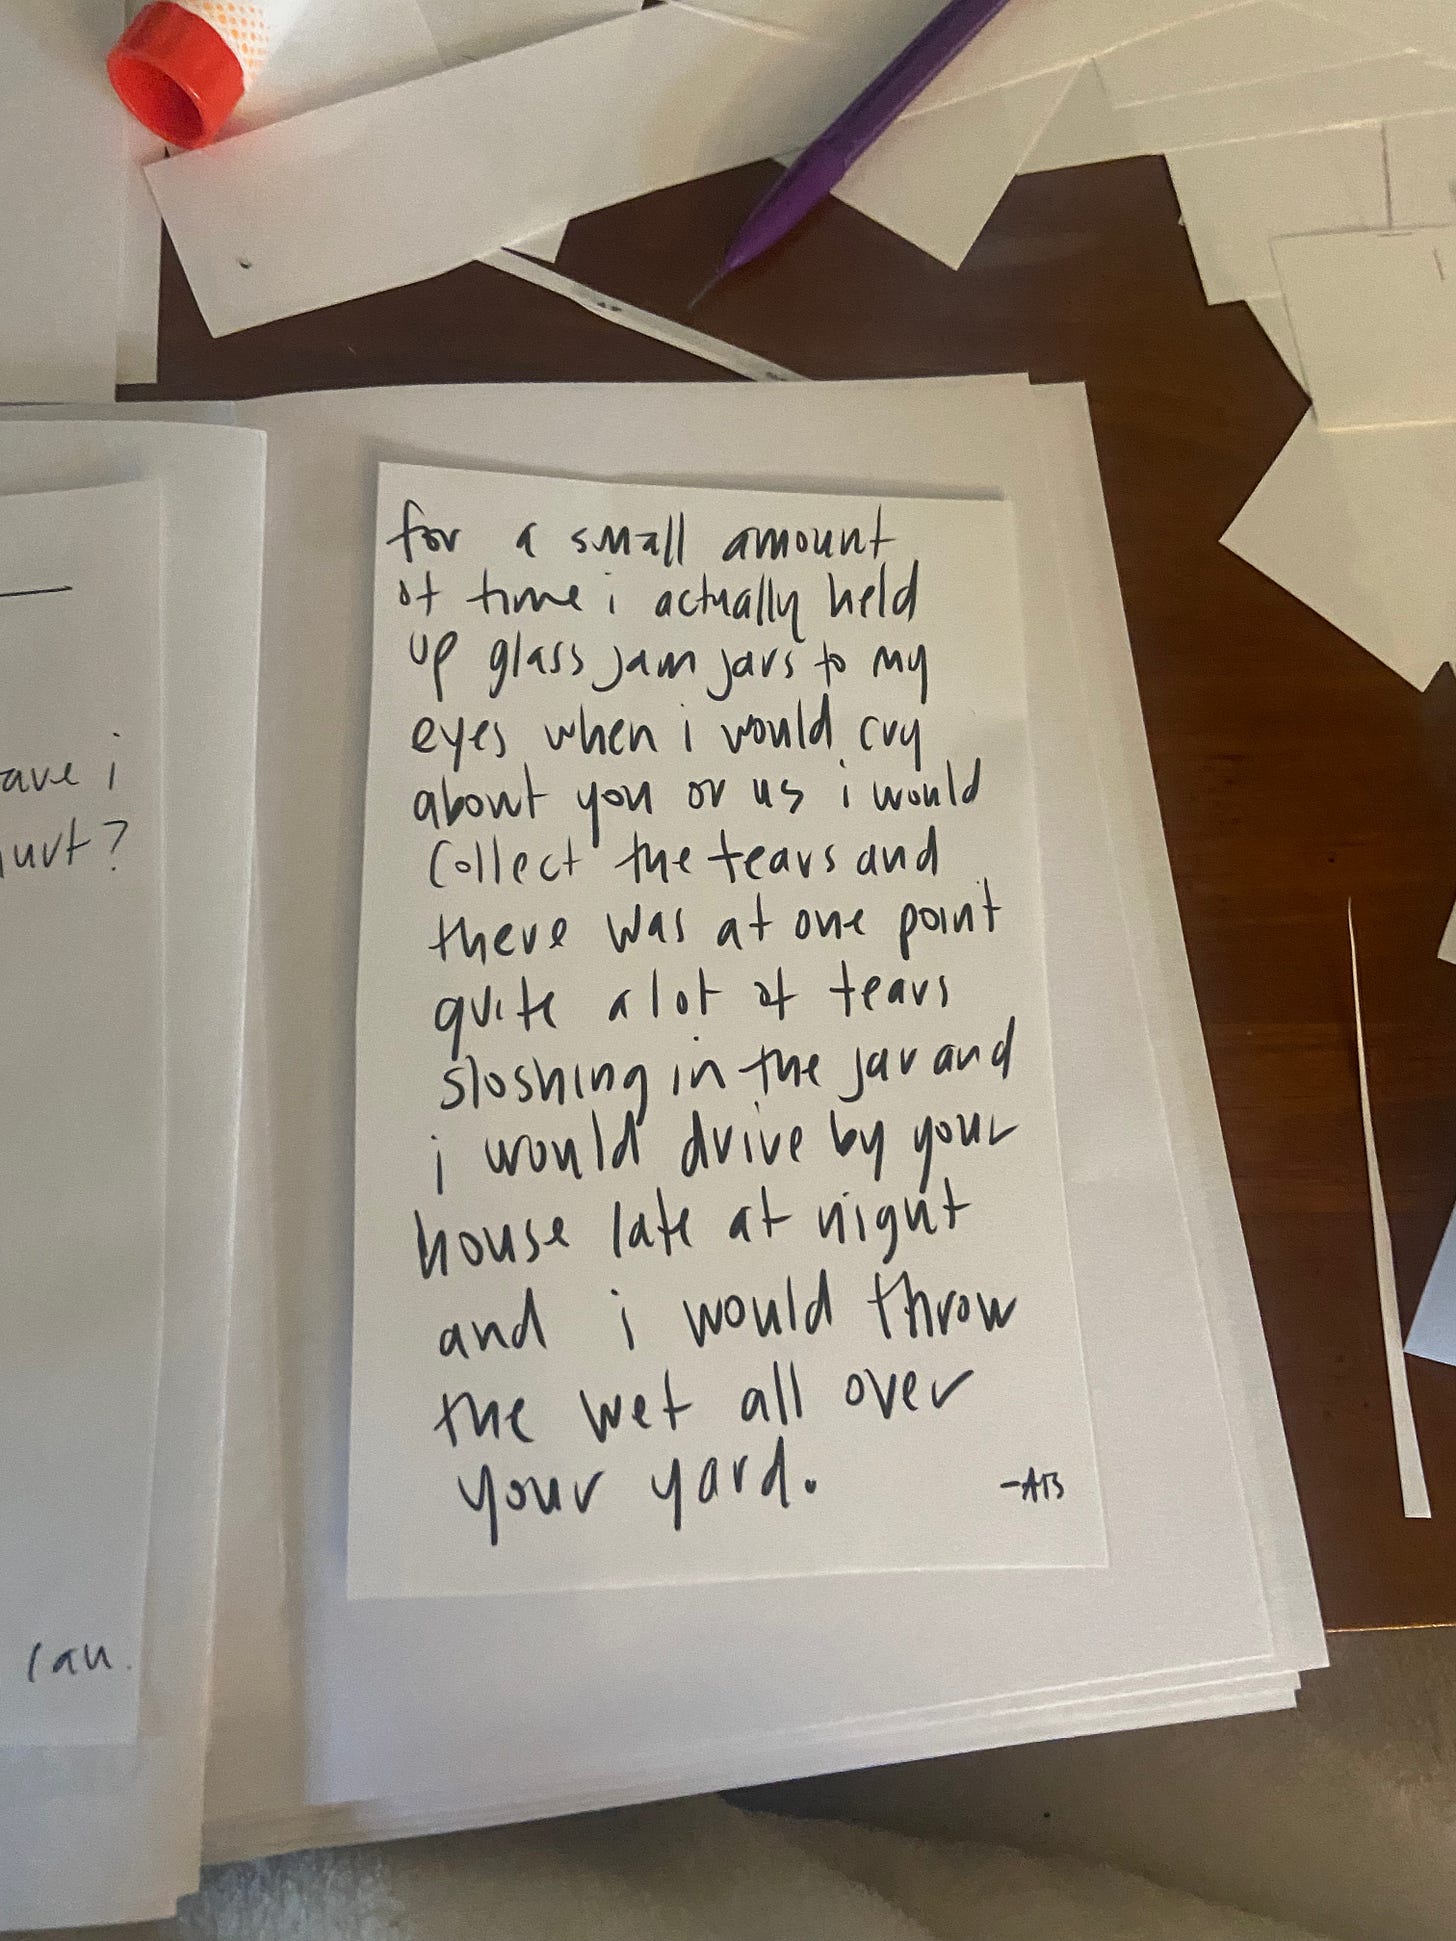 ave i
urt?
can.
for a small amount
of time i actually held
up glass jam jars to my
eyes when i would cry
about you or us i would
collect the tears and
there was at one point
quite a lot of tears
sloshing in the jar and
i would drive by your
house late at night
and i would throw
the wet all over
your yard.
-AB